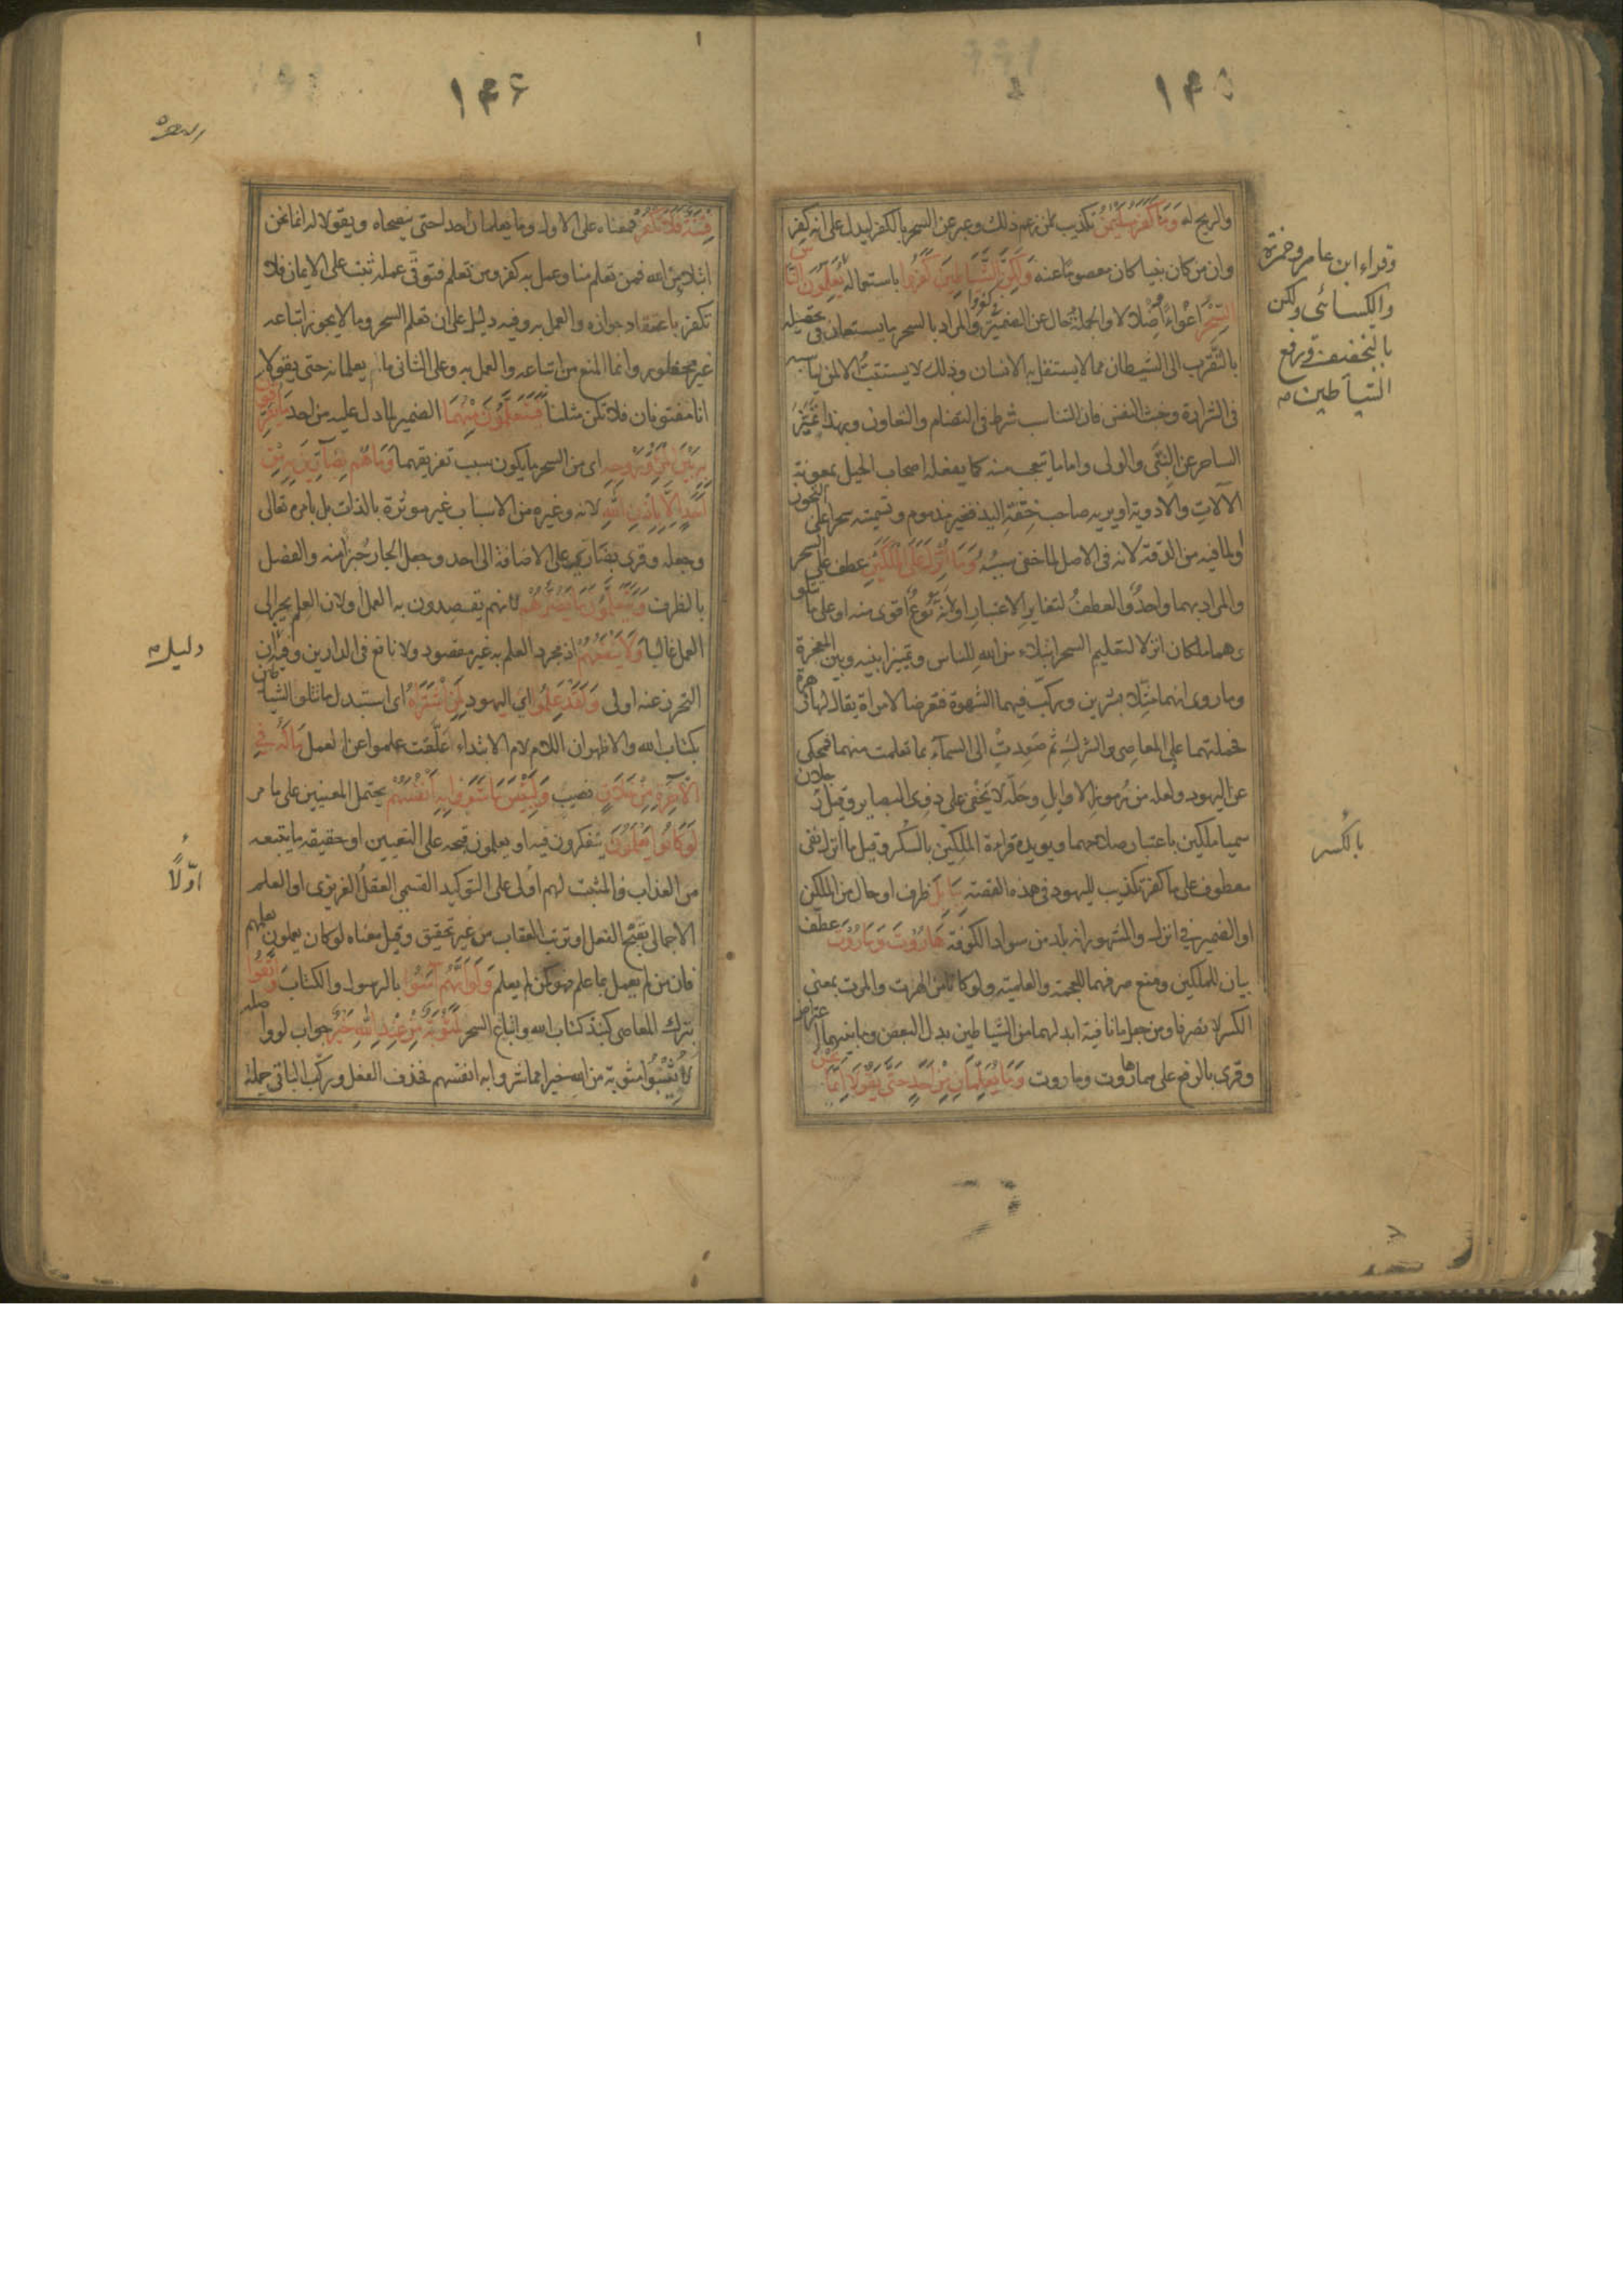 ١٤٥
والريح له وَمَا كَفَرَ سُلَيْمٰنُ تكذيب لمن زعم ذلك وعبر عن السحر بالكفر ليدل على انه كفر
وان من كان نبيا كان معصوما عنه وَلٰكِنَّ الشَّيَاطِينَ كَفَرُوا باستعماله يُعَلِّمُونَ النَّاسَ
السِّحْرَ اغواءً واضلالا والجملة حال عن الضمير والمراد بالسحر ما يستعان فى تحصيله
بالتقرب الى الشيطان مما لا يستقل به الانسان وذلك لا يستتب الا لمن يناسبه
فى الشرارة وخبث النفس فان التناسب شرط فى التضام والتعاون وبهذا تميز
الساحر عن النبى والولى واما ما يتعجب منه كما يفعله اصحاب الحيل بمعونة
الآلات والادوية او يريه صاحب خفة اليد فغير مذموم وتسميته سحرا على التجوز
او لما فيه من الدقة لانه فى الاصل لما خفى سببه وَمَا اُنْزِلَ عَلَى الْمَلَكَيْنِ عطف على السحر
والمراد بهما واحد والعطف لتغاير الاعتبار او لانه نوع اقوى منه او على ما تتلو
وهما ملكان انزلا لتعليم السحر ابتلاء من الله للناس وتمييزا بينه وبين المعجزة
وما روى انهما مثلا بشرين وركب فيهما الشهوة فتعرضا لامراة يقال لها زهرة
فحملتهما على المعاصى والشرك ثم صعدت الى السماء بما تعلمت منهما فمحكى
عن اليهود ولعله من رموز الاوايل وحله لا يخفى على ذوى البصاير وقيل رجلان
سميا ملكين باعتبار صلاحهما ويويده قراءة الملكين بالكسر وقيل ما انزل نفى
معطوف على ما كفر تكذيب لليهود فى هذه القصة بِبَابِلَ ظرف او حال من الملكين
او الضمير فى انزل والمشهور انه بلد من سواد الكوفة هَارُوتَ وَمَارُوتَ عطف
بيان للملكين ومنع صرفهما للعجمة والعلمية ولو كانا من الهرت والمرت بمعنى
الكسر لانصرفا ومن جعل ما نافية ابدلهما من الشياطين بدل البعض وما بينهما اعتراض
وقرى بالرفع على هما هاروت وماروت وَمَا يُعَلِّمَانِ مِنْ اَحَدٍ حَتّٰى يَقُولَا اِنَّمَا نَحْنُ
وقراء ابن عامر وحمزة
والكسائى ولكن
بالتخفيف ورفع
الشياطين
بالكسر
١٤٦
البقره
فِتْنَةٌ فَلَا تَكْفُرْ فمعناه على الاول وما يعلمان احدا حتى ينصحاه ويقولا له انما نحن
ابتلاء من الله فمن تعلم منا وعمل به كفر ومن تعلم فتوقى عمله ثبت على الايمان فلا
تكفر باعتقاد جوازه والعمل به وفيه دليل على ان تعلم السحر وما لا يجوز اتباعه
غير محظور وانما المنع من اتباعه والعمل به وعلى الثانى ما يعلمانه حتى يقولا
انا مفتونان فلا تكن مثلنا فَيَتَعَلَّمُونَ مِنْهُمَا الضمير لما دل عليه من احد مَا يُفَرِّقُونَ
بِهِ بَيْنَ الْمَرْءِ وَزَوْجِهِ اى من السحر ما يكون سبب تفريقهما وَمَا هُمْ بِضَآرِّينَ بِهِ مِنْ
اَحَدٍ اِلَّا بِاِذْنِ اللّٰهِ لانه وغيره من الاسباب غير موثرة بالذات بل بامره تعالى
وجعله وقرى بضارى على الاضافة الى احد وجعل الجار جزأ منه والفصل
بالظرف وَيَتَعَلَّمُونَ مَا يَضُرُّهُمْ لانهم يقصدون به العمل ولان العلم يجر الى
العمل غالبا وَلَا يَنْفَعُهُمْ اذ مجرد العلم به غير مقصود ولا نافع فى الدارين وفيه ان
التحرز عنه اولى وَلَقَدْ عَلِمُوا اى اليهود لَمَنِ اشْتَرٰاهُ اى استبدل ما تتلو الشياطين
بكتاب الله والاظهر ان اللام لام الابتداء علقت علموا عن العمل مَا لَهُ فِى
الْآخِرَةِ مِنْ خَلَاقٍ نصيب وَلَبِئْسَ مَا شَرَوْا بِهِ اَنْفُسَهُمْ يحتمل المعنيين على ما مر
لَوْ كَانُوا يَعْلَمُونَ يتفكرون فيه او يعلمون قبحه على التعيين او حقيقة ما يتبعه
من العذاب والمثبت لهم اولى على التوكيد القسمى العقل الغريزى او العلم
الاجمالى بقبح الفعل او ترتب العقاب من غير تحقيق وقيل معناه لو كان يعملون بعلمهم
فان من لم يعمل بما علم فهو كمن لم يعلم وَلَوْ اَنَّهُمْ آمَنُوا بالرسول والكتاب وَاتَّقَوْا
بترك المعاصى كنبذ كتاب الله واتباع السحر لَمَثُوبَةٌ مِنْ عِنْدِ اللّٰهِ خَيْرٌ جواب لو واصله
لاثيبوا مثوبة من الله خيرا مما شروا به انفسهم فحذف الفعل وركب الباقى جملة
دليل
اوّلاً